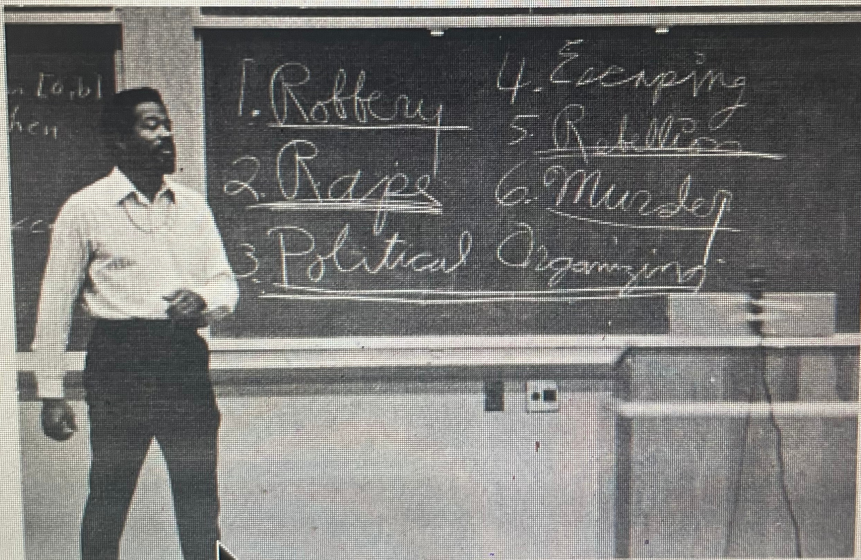 n [a,b]
hen
1. Robbery
2. Rape
3. Political Organizing
4. Escaping
5. Rebellion
6. Murder